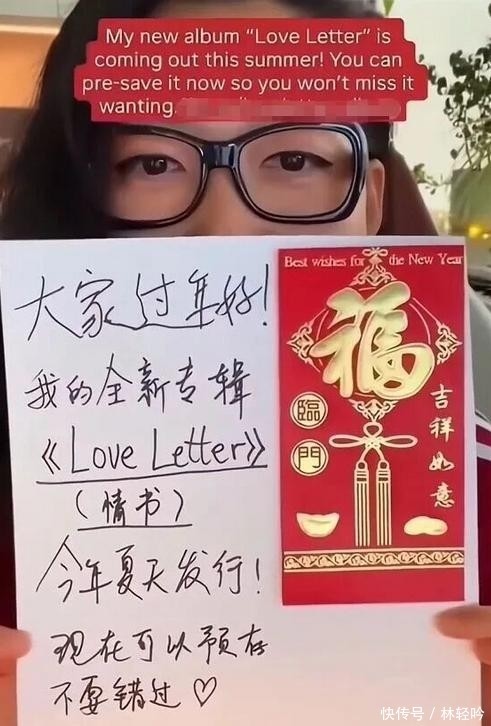 My new album “Love Letter” is
coming out this summer! You can
pre-save it now so you won’t miss it
wanting.
大家过年好!
我的全新专辑
《Love Letter》
(情书)
今年夏天发行!
现在可以预存
不要错过♡
Best wishes for the New Year
福
臨
門
吉祥如意
快传号 / 林轻吟